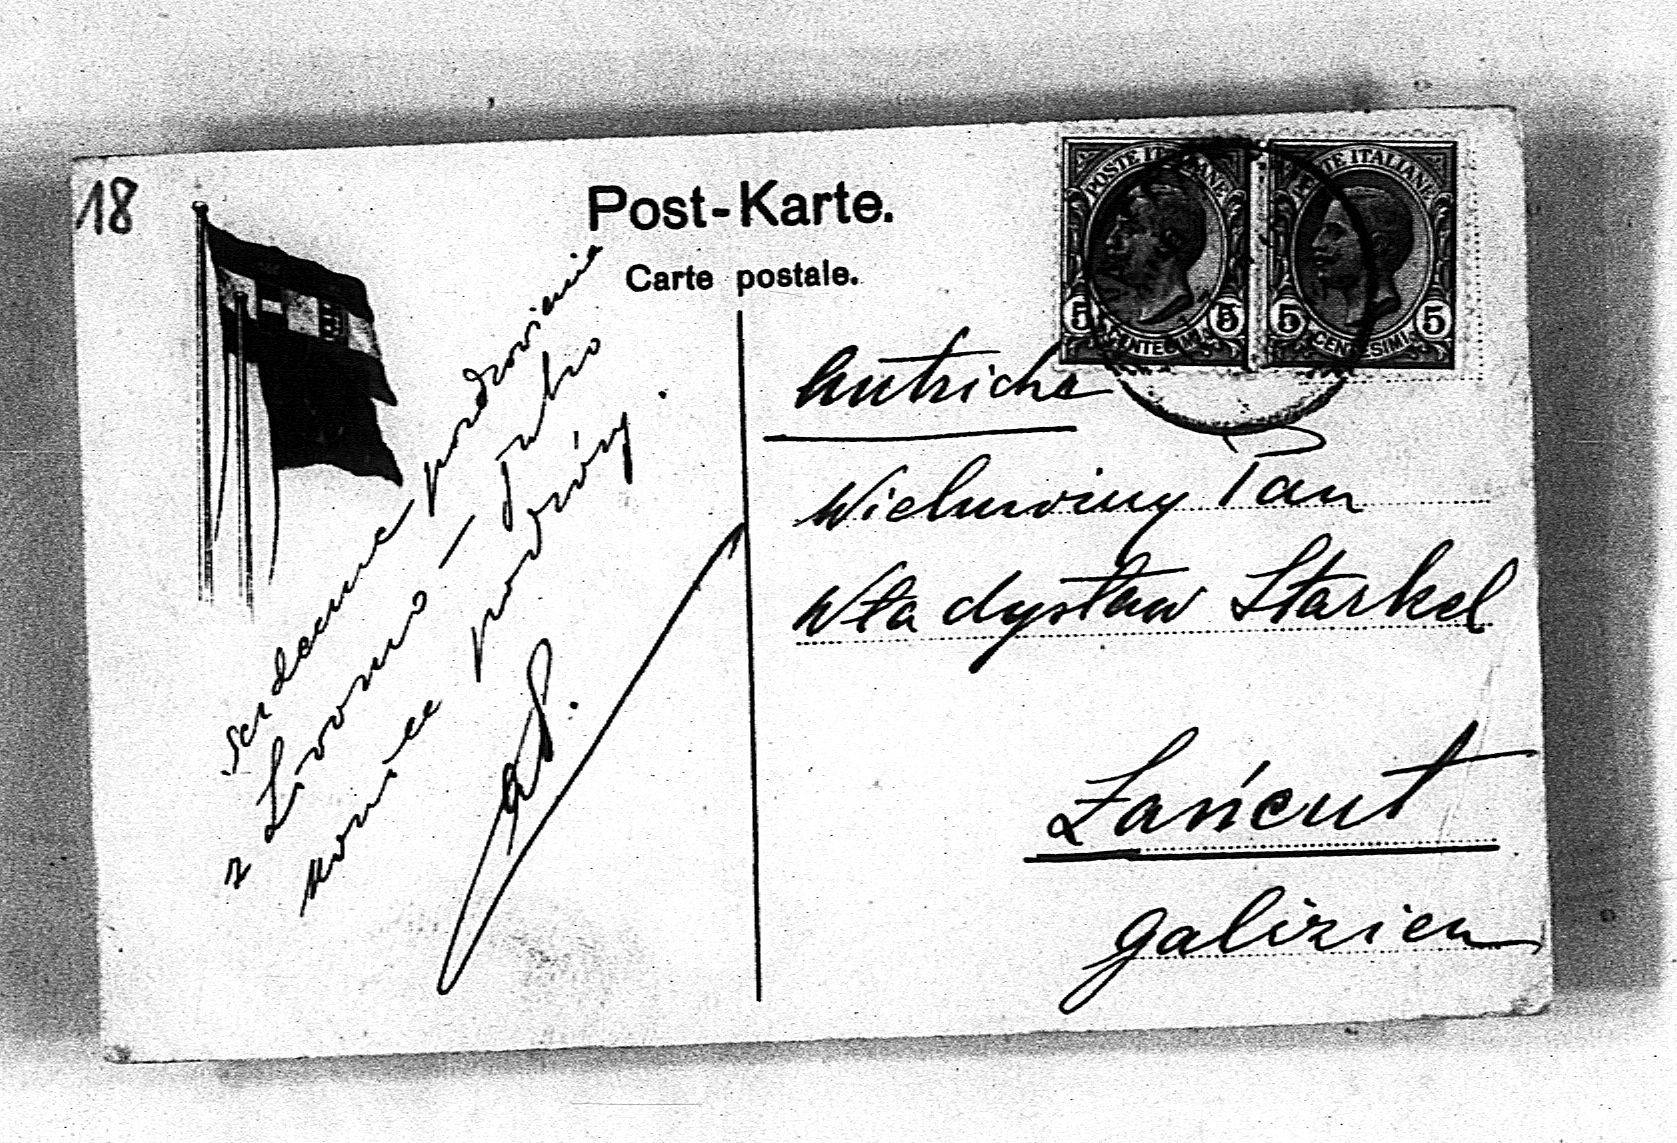 18
Post-Karte.
Carte postale.
POSTE ITALIANE
POSTE ITALIANE
5 5
CENTESIMI
5 5
CENTESIMI
Autriche
Wielmożny Pan
Władysław Starkel
Łańcut
Galizien
Serdeczne pozdrowienia
z Livorno — Jutro
koniec podróży.